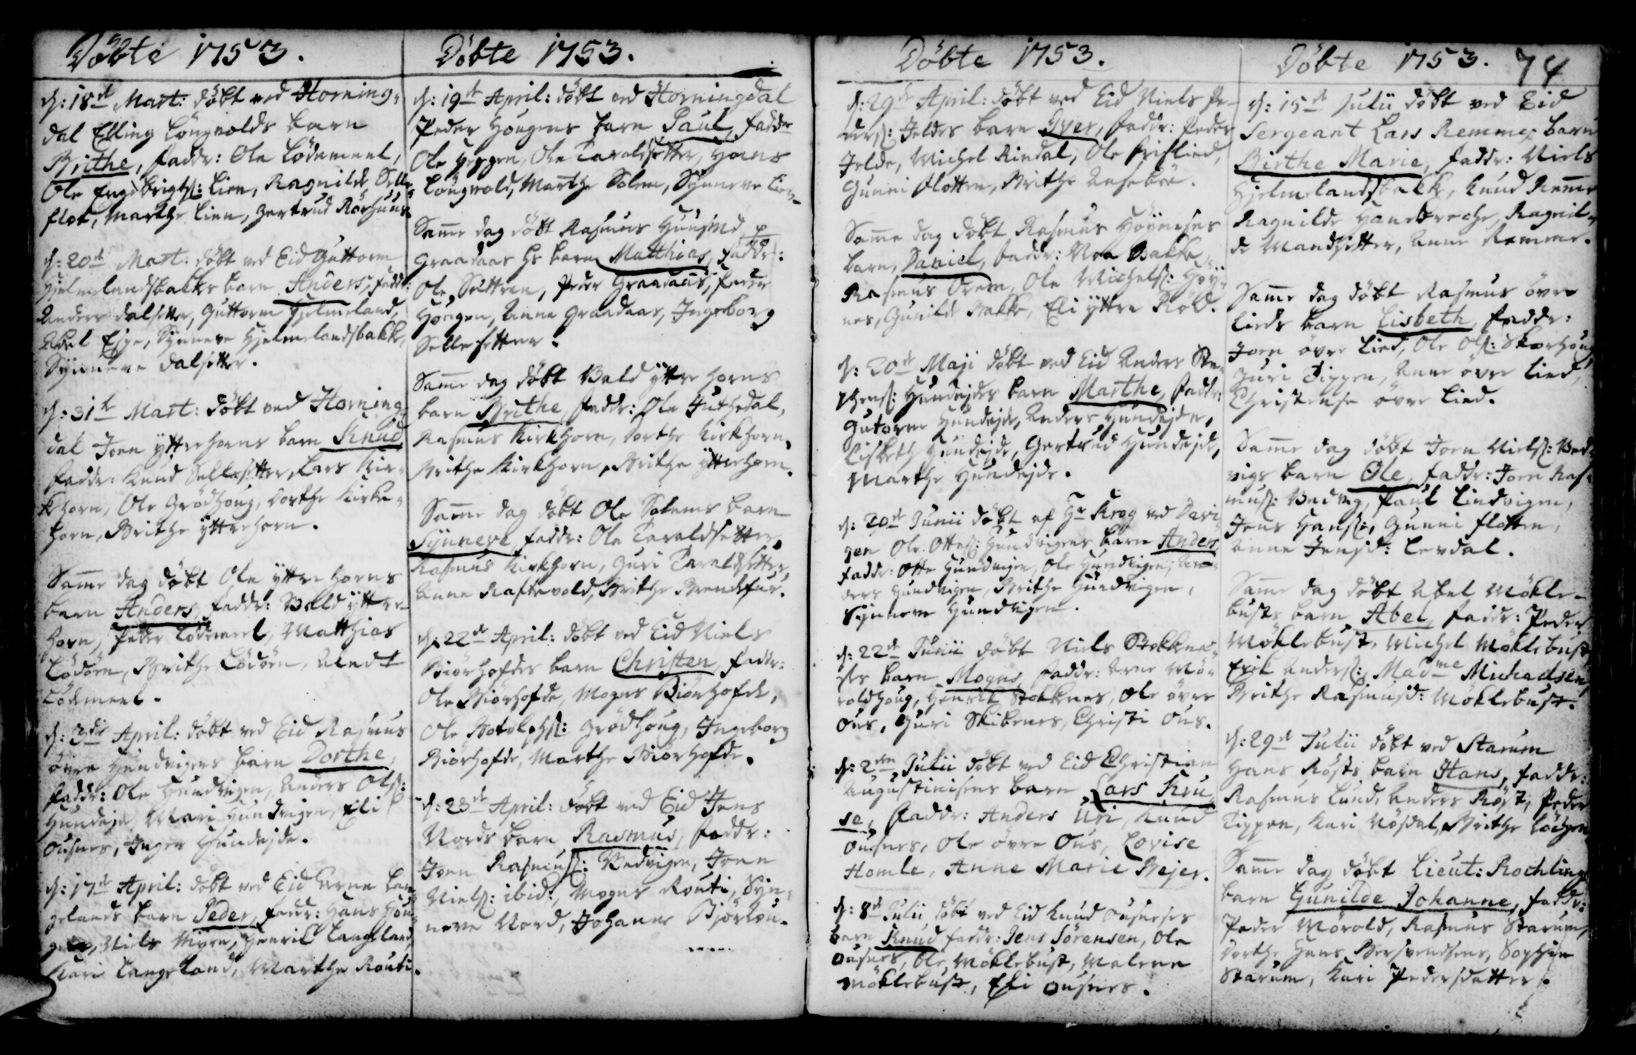 Döbte 1753.
d: 18de Mart: döbt ved Horning-
dal Elling Löngvolds barn
Birthe, faddr: Ole Lödemeel,
Ole Engebrigts: Lien, Ragnilde Selle-
flot, Marthe Lien, Gertrud Rörhuus
d: 20de Mart: döbt ved Eid Guttorm
Hjelmelandsbakks barn Anders, faddr:
Anders Dalsetter, Guttorm Hjelmeland,
Abel Eye, Synneve Hjelmelandsbakk,
Synneve Dalsetter.
d: 31te Mart: döbt ved Horning-
dal Joen ytterhorns barn Knud
faddr: Knud Sellesetter, Lars Kir-
khorn, Ole Grödhoug, Dorthe Kirk-
horn, Brithe ytterhorn.
Samme dag döbt Ole yttrehorns
barn Anders, faddr: Bald yttre-
horn, Peder Lödemeel, Matthias
Lödöen, Brithe Lödöen, Alendt
Lödemeel.
d: 2den April: döbt ved Eid Rasmus
övre Hundvigens barn Dorthe,
faddr: Ole Hundvigen, Anders Ols:
Hundeide, Mari Hundvigen, Eli
Ousnes, Inger Hundejde.
d: 17de April: döbt ved Eid Arne Lan-
gelands barn Peder, faddr: Hans Hou-
gen, Niels Myren, Henrik Langeland
Kari Langeland, Marthe Routi.
Döbte 1753.
d: 19de April: döbt ved Horningdal
Peder Hougens barn Paul, faddr
Ole Heggen, Ole Taraldsetter, Hans
Löngvold, Marthe Solem, Synneve Lien
Samme dag döbt Rasmus Huusmd
Graadaas hs barn Matthias, faddr:
Ole Sættren, Peder Graadaas, Peder
Hougen, Anne Graadaas, Ingeborg
Sellesetter.
Samme dag döbt Bald yttre horns
barn Brithe, faddr: Ole Juthedal,
Rasmus Kirkhorn, Dorthe Kirkhorn,
Brithe Kirkhorn, Brithe ytterhorn.
Samme dag döbt Ole Solems barn
Synneve faddr: Ole Taraldsetter,
Rasmus Kirkhorn, Guri Taraldsetter,
Anne Raftevold, Brithe Brendefur.
d: 22de April: döbt ved Eid Niels
Biörhofdes barn Christen, faddr:
Ole Biörhofde, Mogns Biörhofde,
Ole Botolphs: Grödhoug, Ingeborg
Biörhofde, Marthe Biörhofde.
d: 23de April: döbt ved Eid Jens
Nords barn Rasmus, faddr:
Joen Rasmuss: Vedvigen, Joen
Niels: ibid: Mogns Routi, Syn-
neve Nord, Johanne Bjorlou-
Döbte 1753.
d: 29de April: döbt ved Eid Niels Pe-
ders: Jeldes barn Iver, faddr: Peder
Jelde, Michel Rindal, Ole Frislied,
Gunni Flotten, Brithe Aaseboe.
Samme dag döbt Rasmus Höynesses
barn, Daniel, faddr: Noa Bakke
Rasmus Orem, Ole Michels: Höy-
nes, Gunild Bakke, Eli yttre Kold.
d: 20de Maji döbt ved Eid Anders Ste-
phens: Hundejdes barn Marthe, faddr:
Guttorm Hundejde, Anders Hundejde,
Lisbeth Hundejde, Gertrud Hundejde,
Marthe Hundejde.
d: 20de Junii döbt af Hr Krog ved Davi-
gen Ole Ottes: Hundvigens barn Anders
faddr: Otte Hundvigen, Ole Hundvigen, An-
ders Hundvigen, Brithe Hundvigen,
Synneve Hundvigen.
d: 22de Junii döbt Niels Stokkene-
ses barn Mogns, faddr: Arne Mö-
roldhoug, Henrik Stoknes, Ole övre
Ous, Guri Skibenes, Christi Ous.
d: 2den Julii döbt ved Eid Christian
Augustinisens barn Lars Kru
se, faddr: Anders Uri, Knud
Ousnes, Ole övre Ous, Lovise
Homle, Anne Marie Bejer.
d: 8de Julii döbt ved Eid Knud Ousneses
barn Knud faddr: Jens Sörensen, Ole
Ousnes, Ole Möklebust, Malene
Möklebust, Eli Ousnes.
Döbte 1753. 74
d: 15de Julii döbt ved Eid
Sergeant Lars Remmes barn
Birthe Marie, faddr: Niels
Hjelmelandsbakk, Knud Remme
Ragnilde Hanebreche, Ragnil-
de Mandsetter, Anne Remme.
Samme dag döbt Rasmus övre
Lieds barn Lisbeth, faddr:
Joen övre Lied, Ole Ols: Skorhoug
Guri Tiggen, Anne övre Lied,
Christense övre Lied.
Samme dag döbt Joen Niels: Ved-
vigs barn Ole, faddr: Joen Ras-
muss: Vedvig, Paul Lindvigen,
Jens Hans:, Gunni Flotten,
Anne Jensd: Levdal.
Samme dag döbt Abel Mökle-
busts barn, Abel, faddr: Peder
Möklebust, Michel Möklebust,
Anders: Madme Michaelsen,
Brithe Rasmusd: Möklebust.
d: 29de Julii döbt ved Starum
Hans Rösets barn Hans, faddr:
Rasmus Lund, Anders Röset, Peder
Tiggen, Kari Nösdal, Brithe Lödgen
Samme dag döbt Lieut: Rochlings
barn Gunilde Johanne, faddr:
Peder Morold, Rasmus Starum,
Dorthe Hans Bersvendsen, Sophie
Starum, Kari Pedersdatter.